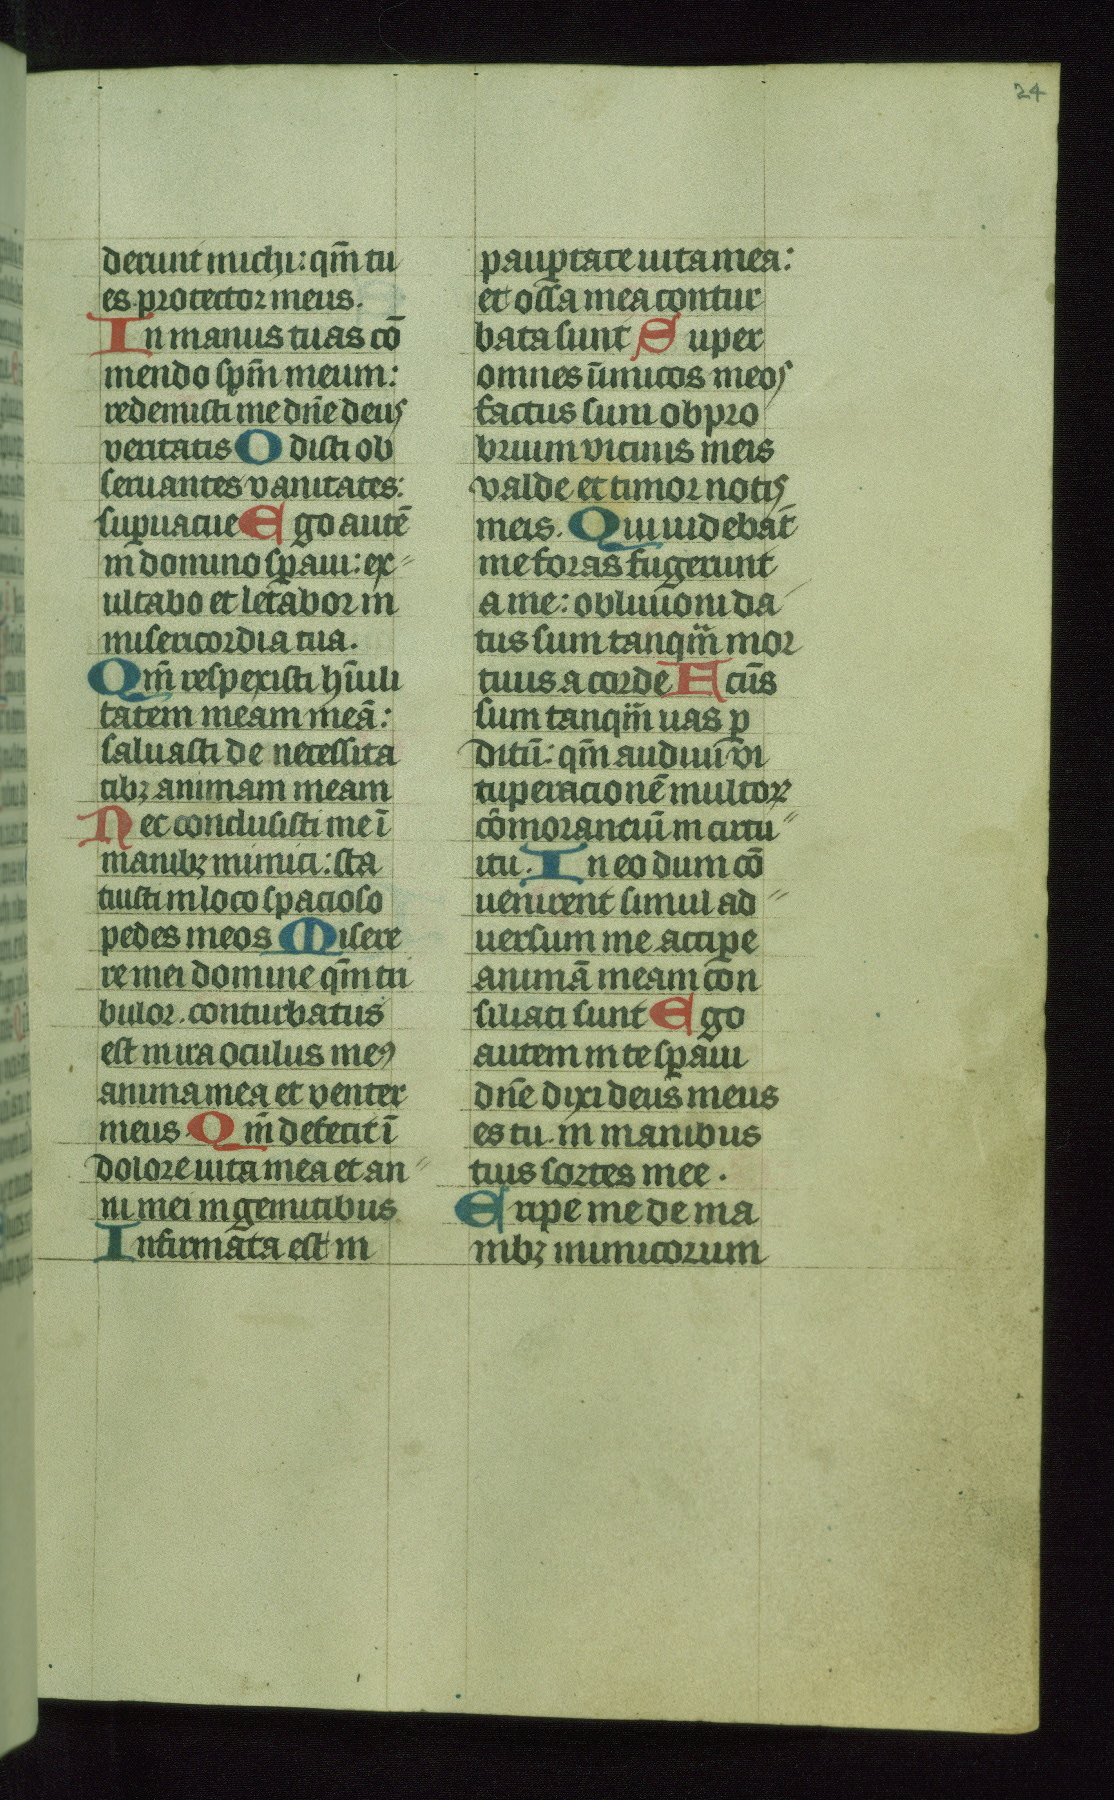 24
derunt michi: qm̄ tu
es protector meus.
In manus tuas cō
mendo spm̄ meum:
redemisti me dn̄e deus
veritatis Odisti ob
seruantes vanitates:
supuacue Ego autē
in domino spaui: ex
ultabo et letabor in
misericordia tua.
Qm̄ respexisti hūili
tatem meam meā:
saluasti de necessita
tibꝫ animam meam
Nec conclusisti me ī
manibꝫ inimici: sta
tuisti in loco spacioso
pedes meos Misere
re mei domine qm̄ tri
bulor. conturbatus
est in ira oculus meꝰ
anima mea et venter
meus Qm̄ defecit ī
dolore uita mea et an
ni mei in gemitibus
Infirmata est in
paup̄tate uita mea:
et ossa mea contur
bata sunt Super
omnes ūimicos meos
factus sum obpro
brium vicinis meis
valde et timor notis
meis. Qui uidebāt
me foras fugerunt
a me: obliuioni da
tus sum tanqm̄ mor
tuus a corde Fctūs
sum tanqm̄ uas ꝑ
ditū: qm̄ audiui vi
tuperacionē multoꝝ
cōmoranciū in circu
itu. In eo dum cō
uenirent simul ad
uersum me accipe
animā meam con
siliati sunt Ego
autem in te sꝑaui
dn̄e dixi deus meus
es tu in manibus
tuis sortes mee.
Eripe me de ma
nibꝫ inimicorum